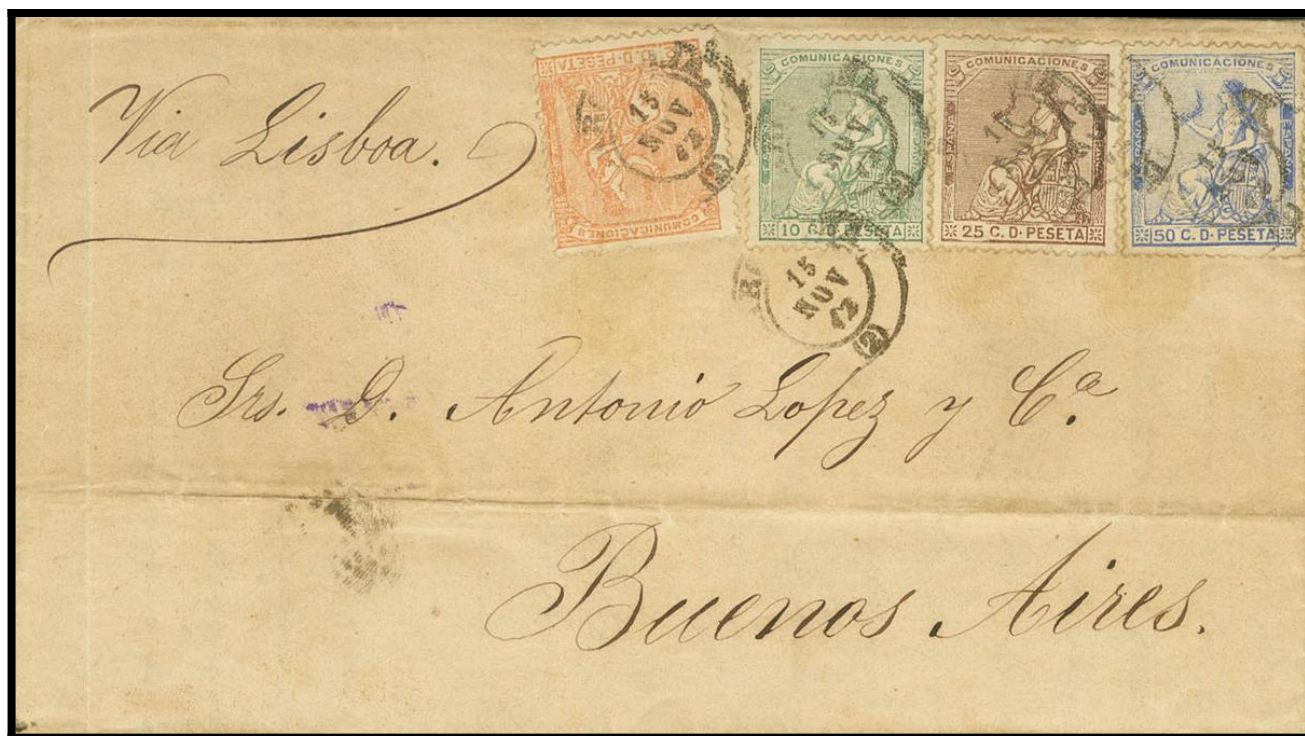 Via Lisboa.
COMUNICACIONES
C. D. PESETA
COMUNICACIONES
ESPAÑA
10 C. D. PESETA
COMUNICACIONES
ESPAÑA
25 C. D. PESETA
COMUNICACIONES
ESPAÑA
50 C. D. PESETA
15
NOV
(2)
15
NOV
(2)
Srs. D. Antonio Lopez y Cª
Buenos Aires.